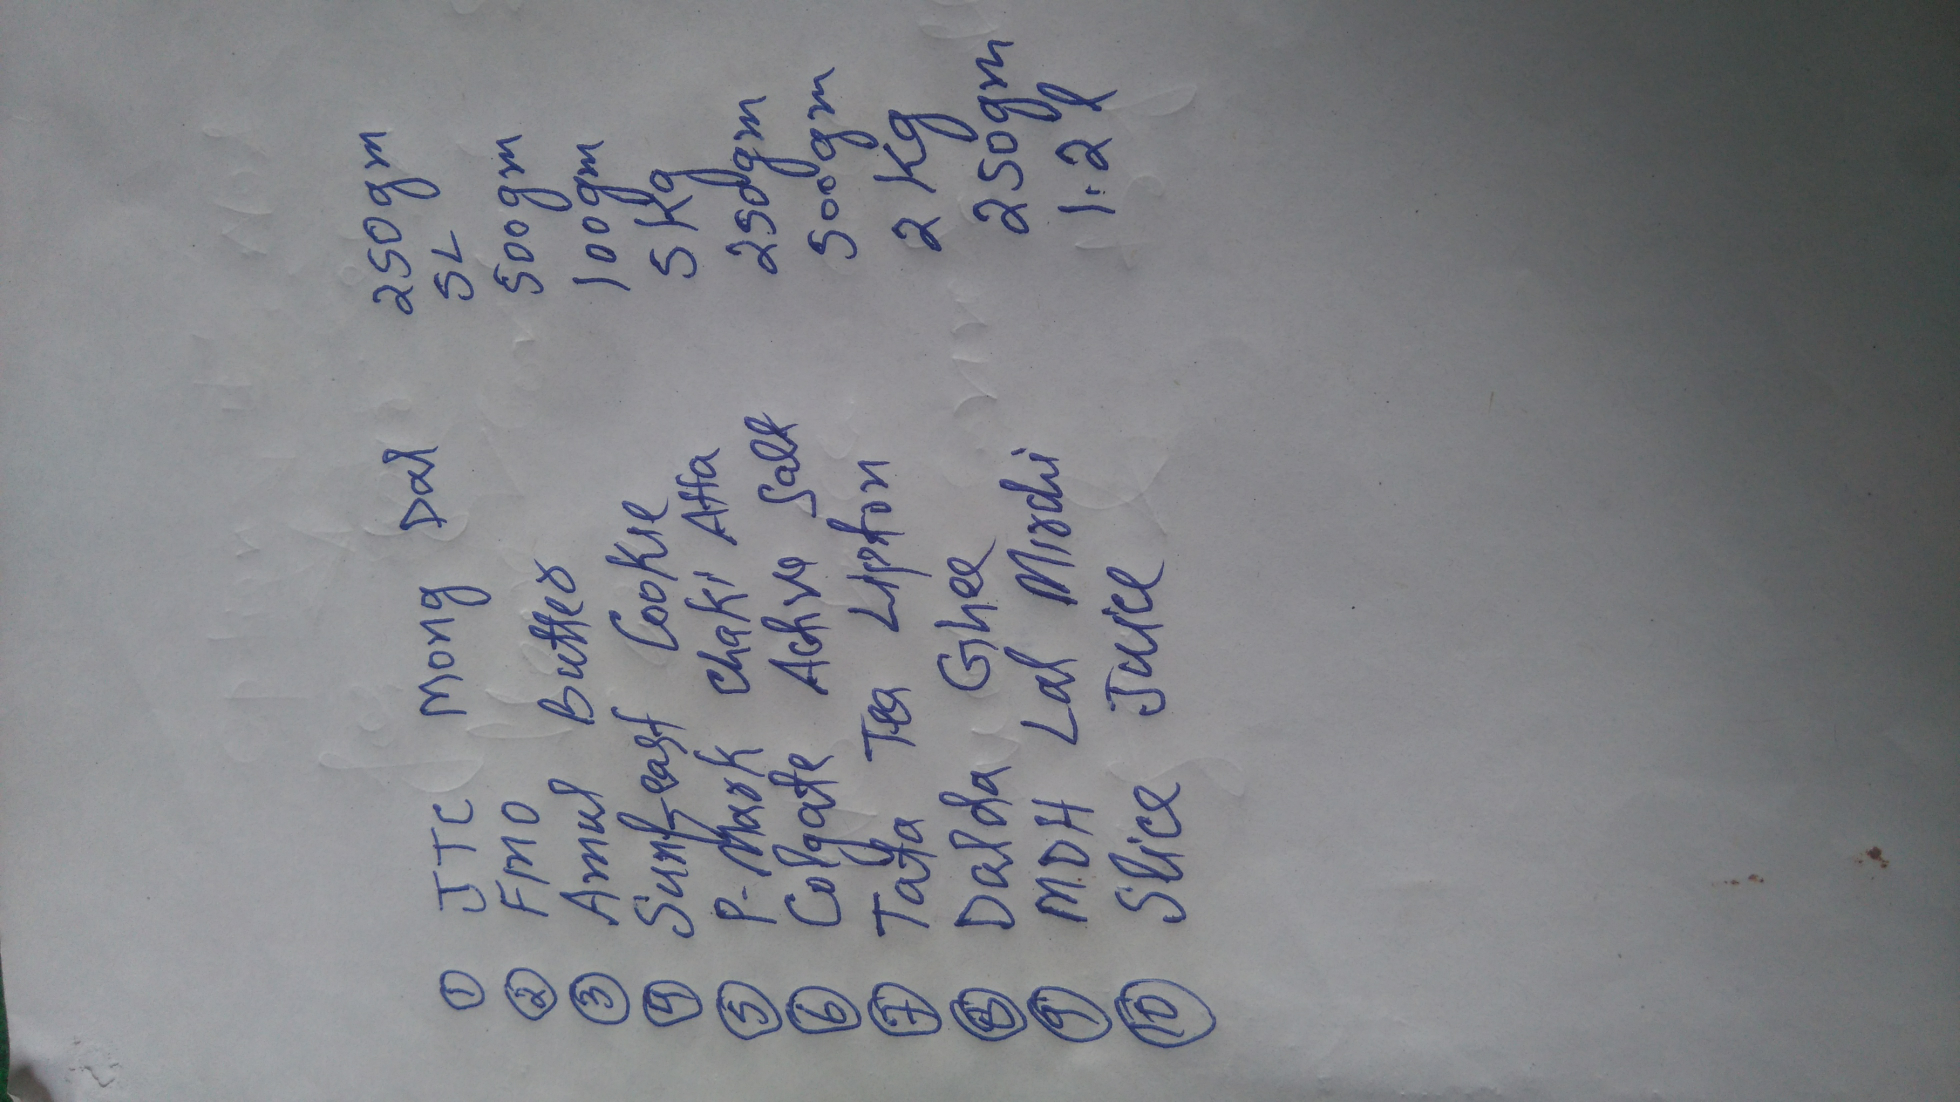 ① JTC Mong Dal 250gm
② FMO 5L
③ Amul Butter 500gm
④ Sunfeast Cookie 100gm
⑤ P-Mark Chaki Atta 5Kg
⑥ Colgate Active Salt 250gm
⑦ Tata Tea Lipton 500gm
⑧ Dalda Ghee 2Kg
⑨ MDH Lal Mirchi 250gm
⑩ Slice Juice 1.2l